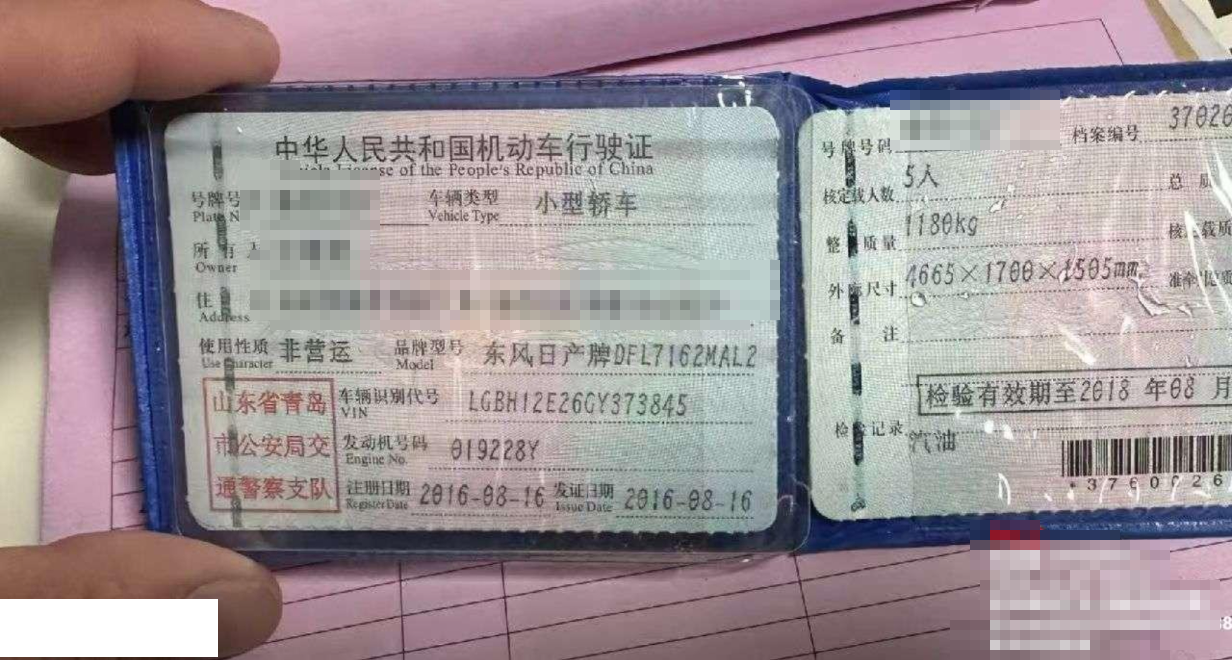 中华人民共和国机动车行驶证
of the People's Republic of China
号牌号
Plate N
车辆类型 小型轿车
Vehicle Type
所有
Owner
住
Address
使用性质 非营运 品牌型号 东风日产牌DFL7162MAL2
Use Character Model
山东省青岛
市公安局交
通警察支队
车辆识别代号 LGBH12E26GY373845
VIN
发动机号码 019228Y
Engine No.
注册日期 2016-08-16 发证日期 2016-08-16
Register Date Issue Date
号牌号码 档案编号 37020
核定载人数 5人 总质
整备质量 1180kg 核定载质
外廓尺寸 4665×1700×1505mm 准牵引
备注
检验有效期至2018年08月
检验记录 汽油
*3760026